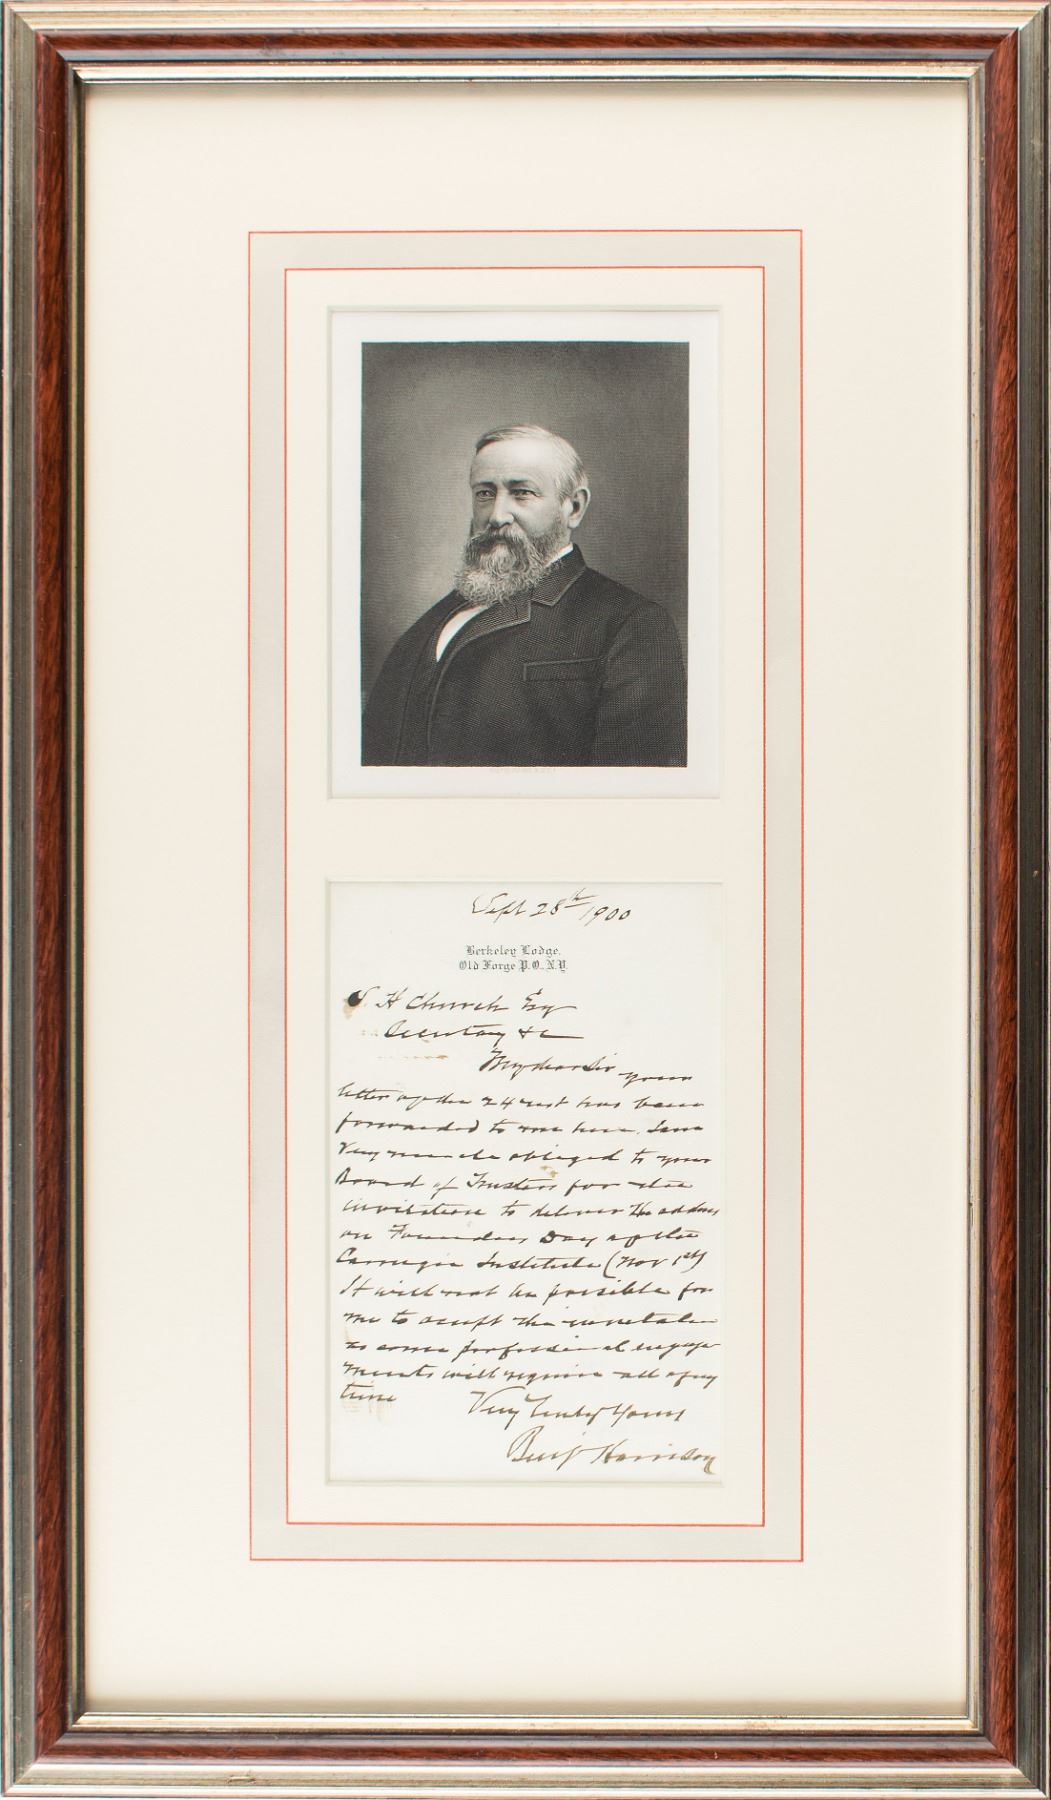 Sept 28th 1900
Berkeley Lodge,
Old Forge P.O. N.Y.
S. H Church Esq
Secretary &c
My dear Sir your
letter of the 24 inst has been
forwarded to me here. I am
Very much obliged to your
Board of Trustees for the
invitation to deliver the address
on Founders Day of the
Carnegie Institute (Nov 1st)
It will not be possible for
me to accept this invitation
as some professional engage
ments will require all of my
time
Very Truly Yours
Benj Harrison